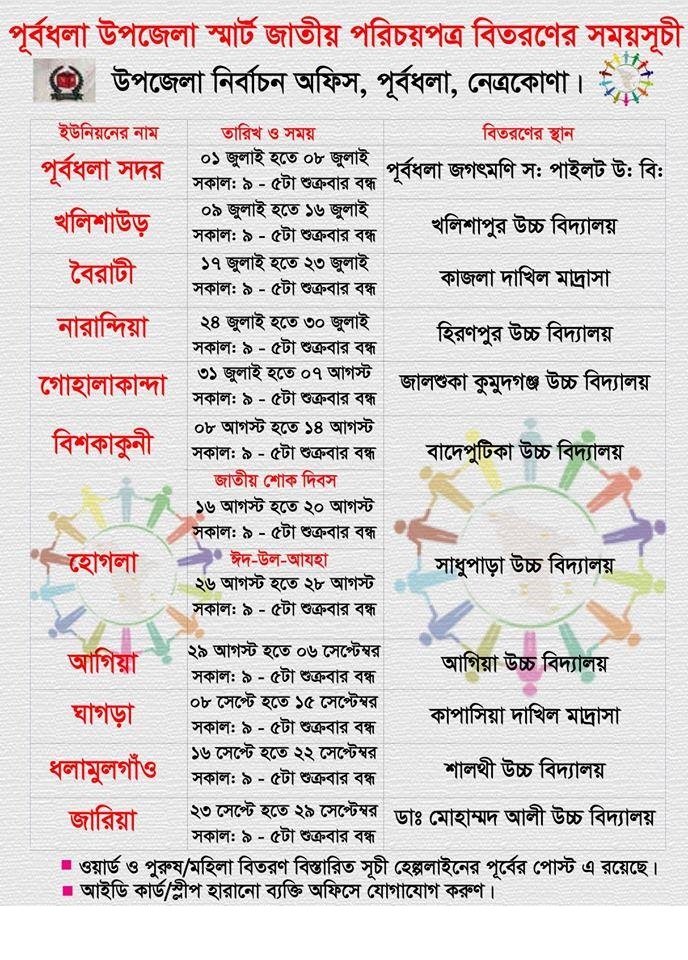 পূর্বধলা উপজেলা স্মার্ট জাতীয় পরিচয়পত্র বিতরণের সময়সূচী
উপজেলা নির্বাচন অফিস, পূর্বধলা, নেত্রকোণা।
ইউনিয়নের নাম তারিখ ও সময় বিতরণের স্থান
পূর্বধলা সদর
০১ জুলাই হতে ০৮ জুলাই
সকাল: ৯ - ৫টা শুক্রবার বন্ধ
পূর্বধলা জগৎমণি স: পাইলট উ: বি:
খলিশাউড়
০৯ জুলাই হতে ১৬ জুলাই
সকাল: ৯ - ৫টা শুক্রবার বন্ধ
খলিশাপুর উচ্চ বিদ্যালয়
বৈরাটী
১৭ জুলাই হতে ২৩ জুলাই
সকাল: ৯ - ৫টা শুক্রবার বন্ধ
কাজলা দাখিল মাদ্রাসা
নারান্দিয়া
২৪ জুলাই হতে ৩০ জুলাই
সকাল: ৯ - ৫টা শুক্রবার বন্ধ
হিরণপুর উচ্চ বিদ্যালয়
গোহালাকান্দা
৩১ জুলাই হতে ০৭ আগস্ট
সকাল: ৯ - ৫টা শুক্রবার বন্ধ
জালশুকা কুমুদগঞ্জ উচ্চ বিদ্যালয়
বিশকাকুনী
০৮ আগস্ট হতে ১৪ আগস্ট
সকাল: ৯ - ৫টা শুক্রবার বন্ধ
বাদেপুটিকা উচ্চ বিদ্যালয়
হোগলা
জাতীয় শোক দিবস
১৬ আগস্ট হতে ২০ আগস্ট
সকাল: ৯ - ৫টা শুক্রবার বন্ধ
ঈদ-উল-আযহা
২৬ আগস্ট হতে ২৮ আগস্ট
সকাল: ৯ - ৫টা শুক্রবার বন্ধ
সাধুপাড়া উচ্চ বিদ্যালয়
আগিয়া
২৯ আগস্ট হতে ০৬ সেপ্টেম্বর
সকাল: ৯ - ৫টা শুক্রবার বন্ধ
আগিয়া উচ্চ বিদ্যালয়
ঘাগড়া
০৮ সেপ্টে হতে ১৫ সেপ্টেম্বর
সকাল: ৯ - ৫টা শুক্রবার বন্ধ
কাপাসিয়া দাখিল মাদ্রাসা
ধলামুলগাঁও
১৬ সেপ্টে হতে ২২ সেপ্টেম্বর
সকাল: ৯ - ৫টা শুক্রবার বন্ধ
শালথী উচ্চ বিদ্যালয়
জারিয়া
২৩ সেপ্টে হতে ২৯ সেপ্টেম্বর
সকাল: ৯ - ৫টা শুক্রবার বন্ধ
ডাঃ মোহাম্মদ আলী উচ্চ বিদ্যালয়
ওয়ার্ড ও পুরুষ/মহিলা বিতরণ বিস্তারিত সূচী হেল্পলাইনের পূর্বের পোস্ট এ রয়েছে।
আইডি কার্ড/স্লীপ হারানো ব্যক্তি অফিসে যোগাযোগ করুণ।